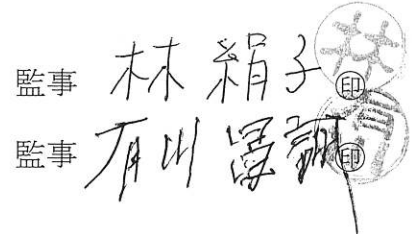 監事 林 絹子 ㊞
監事 有川 ㊞